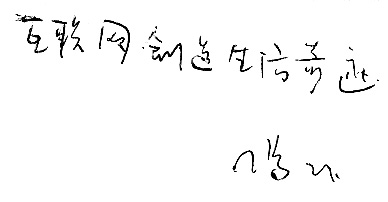 互联网创造生活奇迹